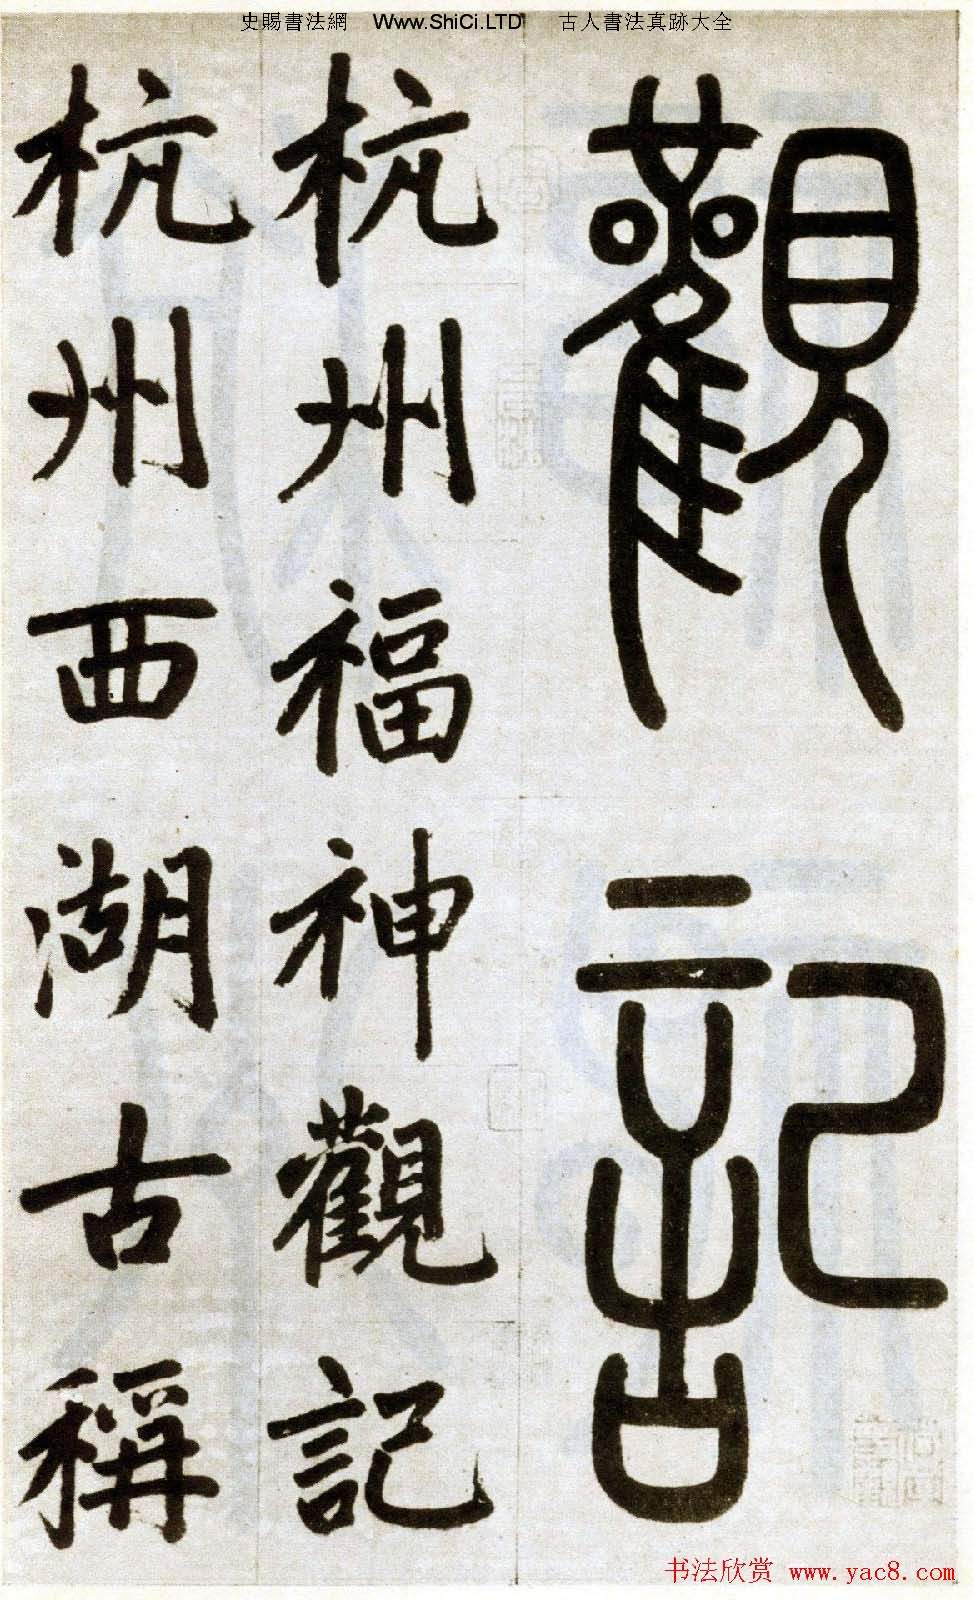 史賜書法網 Www.ShiCi.LTD 古人書法真跡大全
觀記
杭州福神觀記
杭州西湖古稱
书法欣赏 www.yac8.com